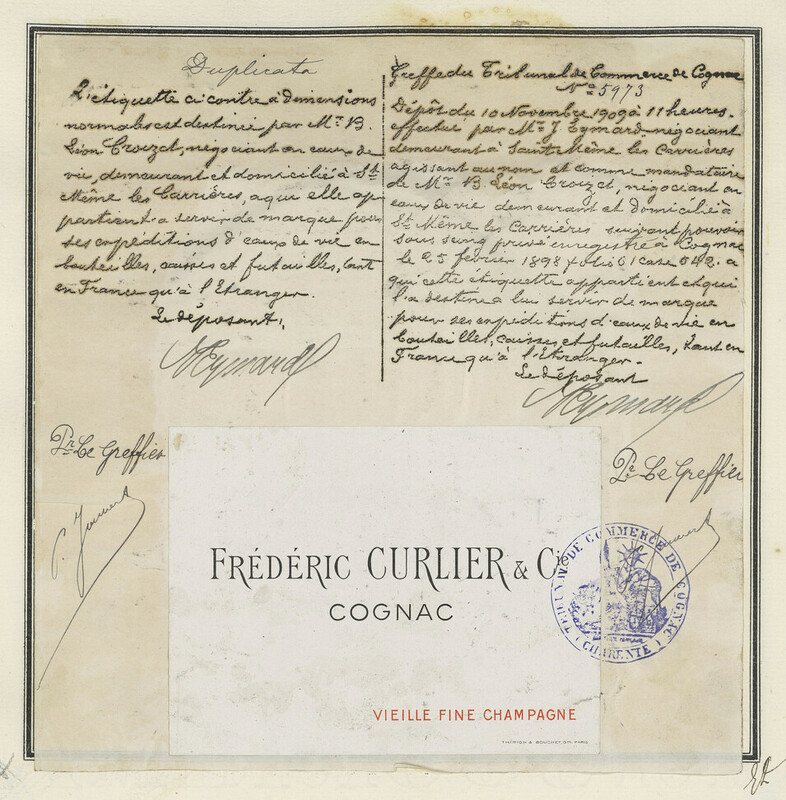 Duplicata
L'étiquette ci contre à dimensions
normales est destinée par Mr. B.
Léon Croizet, négociant en eaux de
vie, demeurant et domicilié à St
Même les Carrières, a qui elle ap
partient a servir de marque pour
ses expéditions d'eaux de vie en
bouteilles, caisses et futailles, tant
en France qu'à l'Etranger.
Le déposant,
Eymard
Pr Le Greffier
Greffe du Tribunal de Commerce de Cognac
No 5973
Dépôt du 10 Novembre 1909 à 11 heures.
effectué par Mr. J. Eymard négociant
demeurant à Saint Même les Carrières
agissant au nom et comme mandataire
de Mr. B. Léon Croizet, négociant en
eaux de vie demeurant et domicilié à
St Même les Carrières suivant pouvoir
sous seing privé enregistré à Cognac
le 25 février 1898 folio 61 case 542. a
qui cette étiquette appartient et qui
l'a destinée a lui servir de marque
pour ses expéditions d'eaux de vie en
bouteilles, caisses et futailles, tant en
France qu'à l'Etranger.
Le déposant
Eymard
Pr Le Greffier
FRÉDÉRIC CURLIER & Cie
COGNAC
VIEILLE FINE CHAMPAGNE
THÉRION & BOUCHET, Gin. PARIS
TRIBUNAL DE COMMERCE DE COGNAC
(CHARENTE)